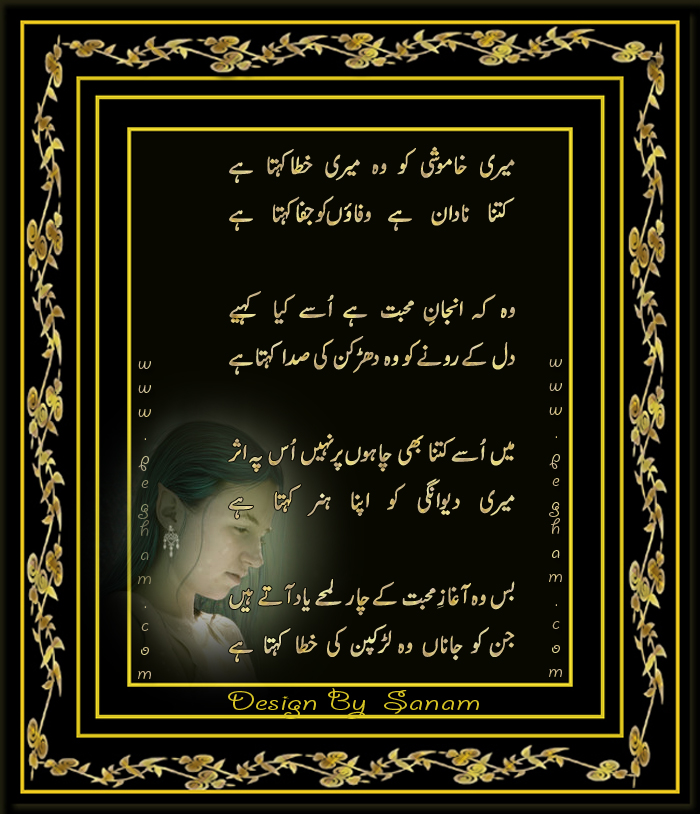 میری خاموشی کو وہ میری خطا کہتا ہے
کتنا نادان ہے وفاؤں کو جفا کہتا ہے
وہ کہ انجانِ محبت ہے اُسے کیا کہیے
دل کے رونے کو وہ دھڑکن کی صدا کہتا ہے
میں اُسے کتنا بھی چاہوں پر نہیں اُس پہ اثر
میری دیوانگی کو اپنا ہنر کہتا ہے
بس وہ آغازِ محبت کے چار لمحے یاد آتے ہیں
جن کو جاناں وہ لڑکپن کی خطا کہتا ہے
www.pegham.com
www.pegham.com
Design By Sanam